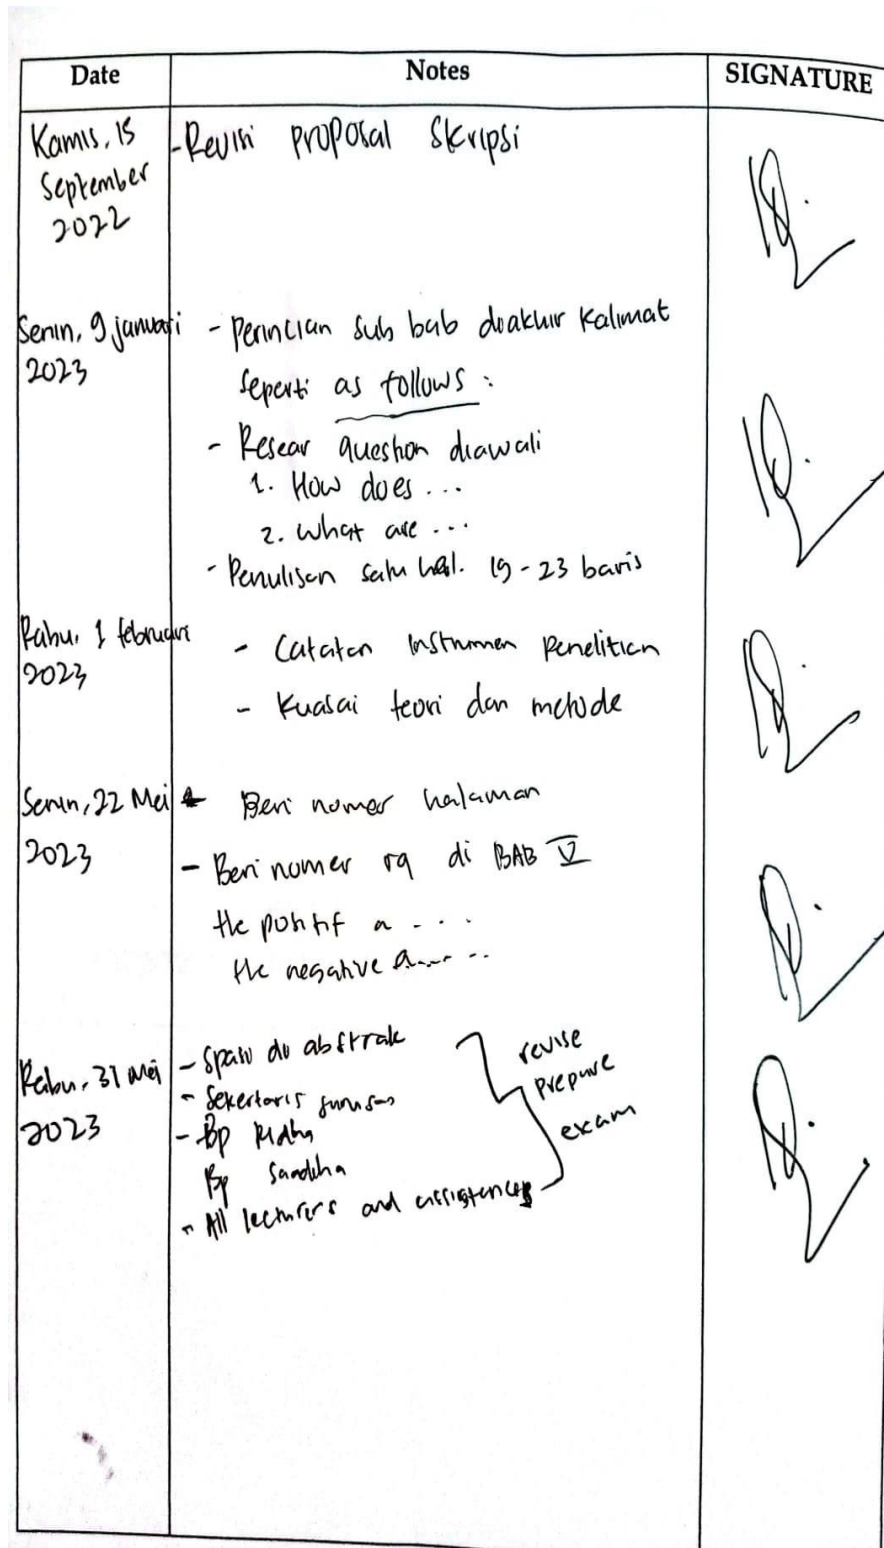 Date Notes SIGNATURE
Kamis, 15 - Revisi proposal Skripsi
September
2022
Senin, 9 januari - perincian sub bab diakhir Kalimat
2023 seperti as follows :
- Resear question diawali
1. How does ...
2. What are ...
- Penulisan satu hal. 19 - 23 baris
Rabu, 1 februari - Catatan Instrumen Penelitian
2023 - Kuasai teori dan metode
Senin, 22 Mei - Beri nomer halaman
2023 - Beri nomer rq di BAB V
the positif a ...
the negative a ...
Rabu, 31 Mei - Spasi di abstrak
2023 - Sekertaris jurusan
- Bp
Bp
- All lecturers and
revise
prepare
exam